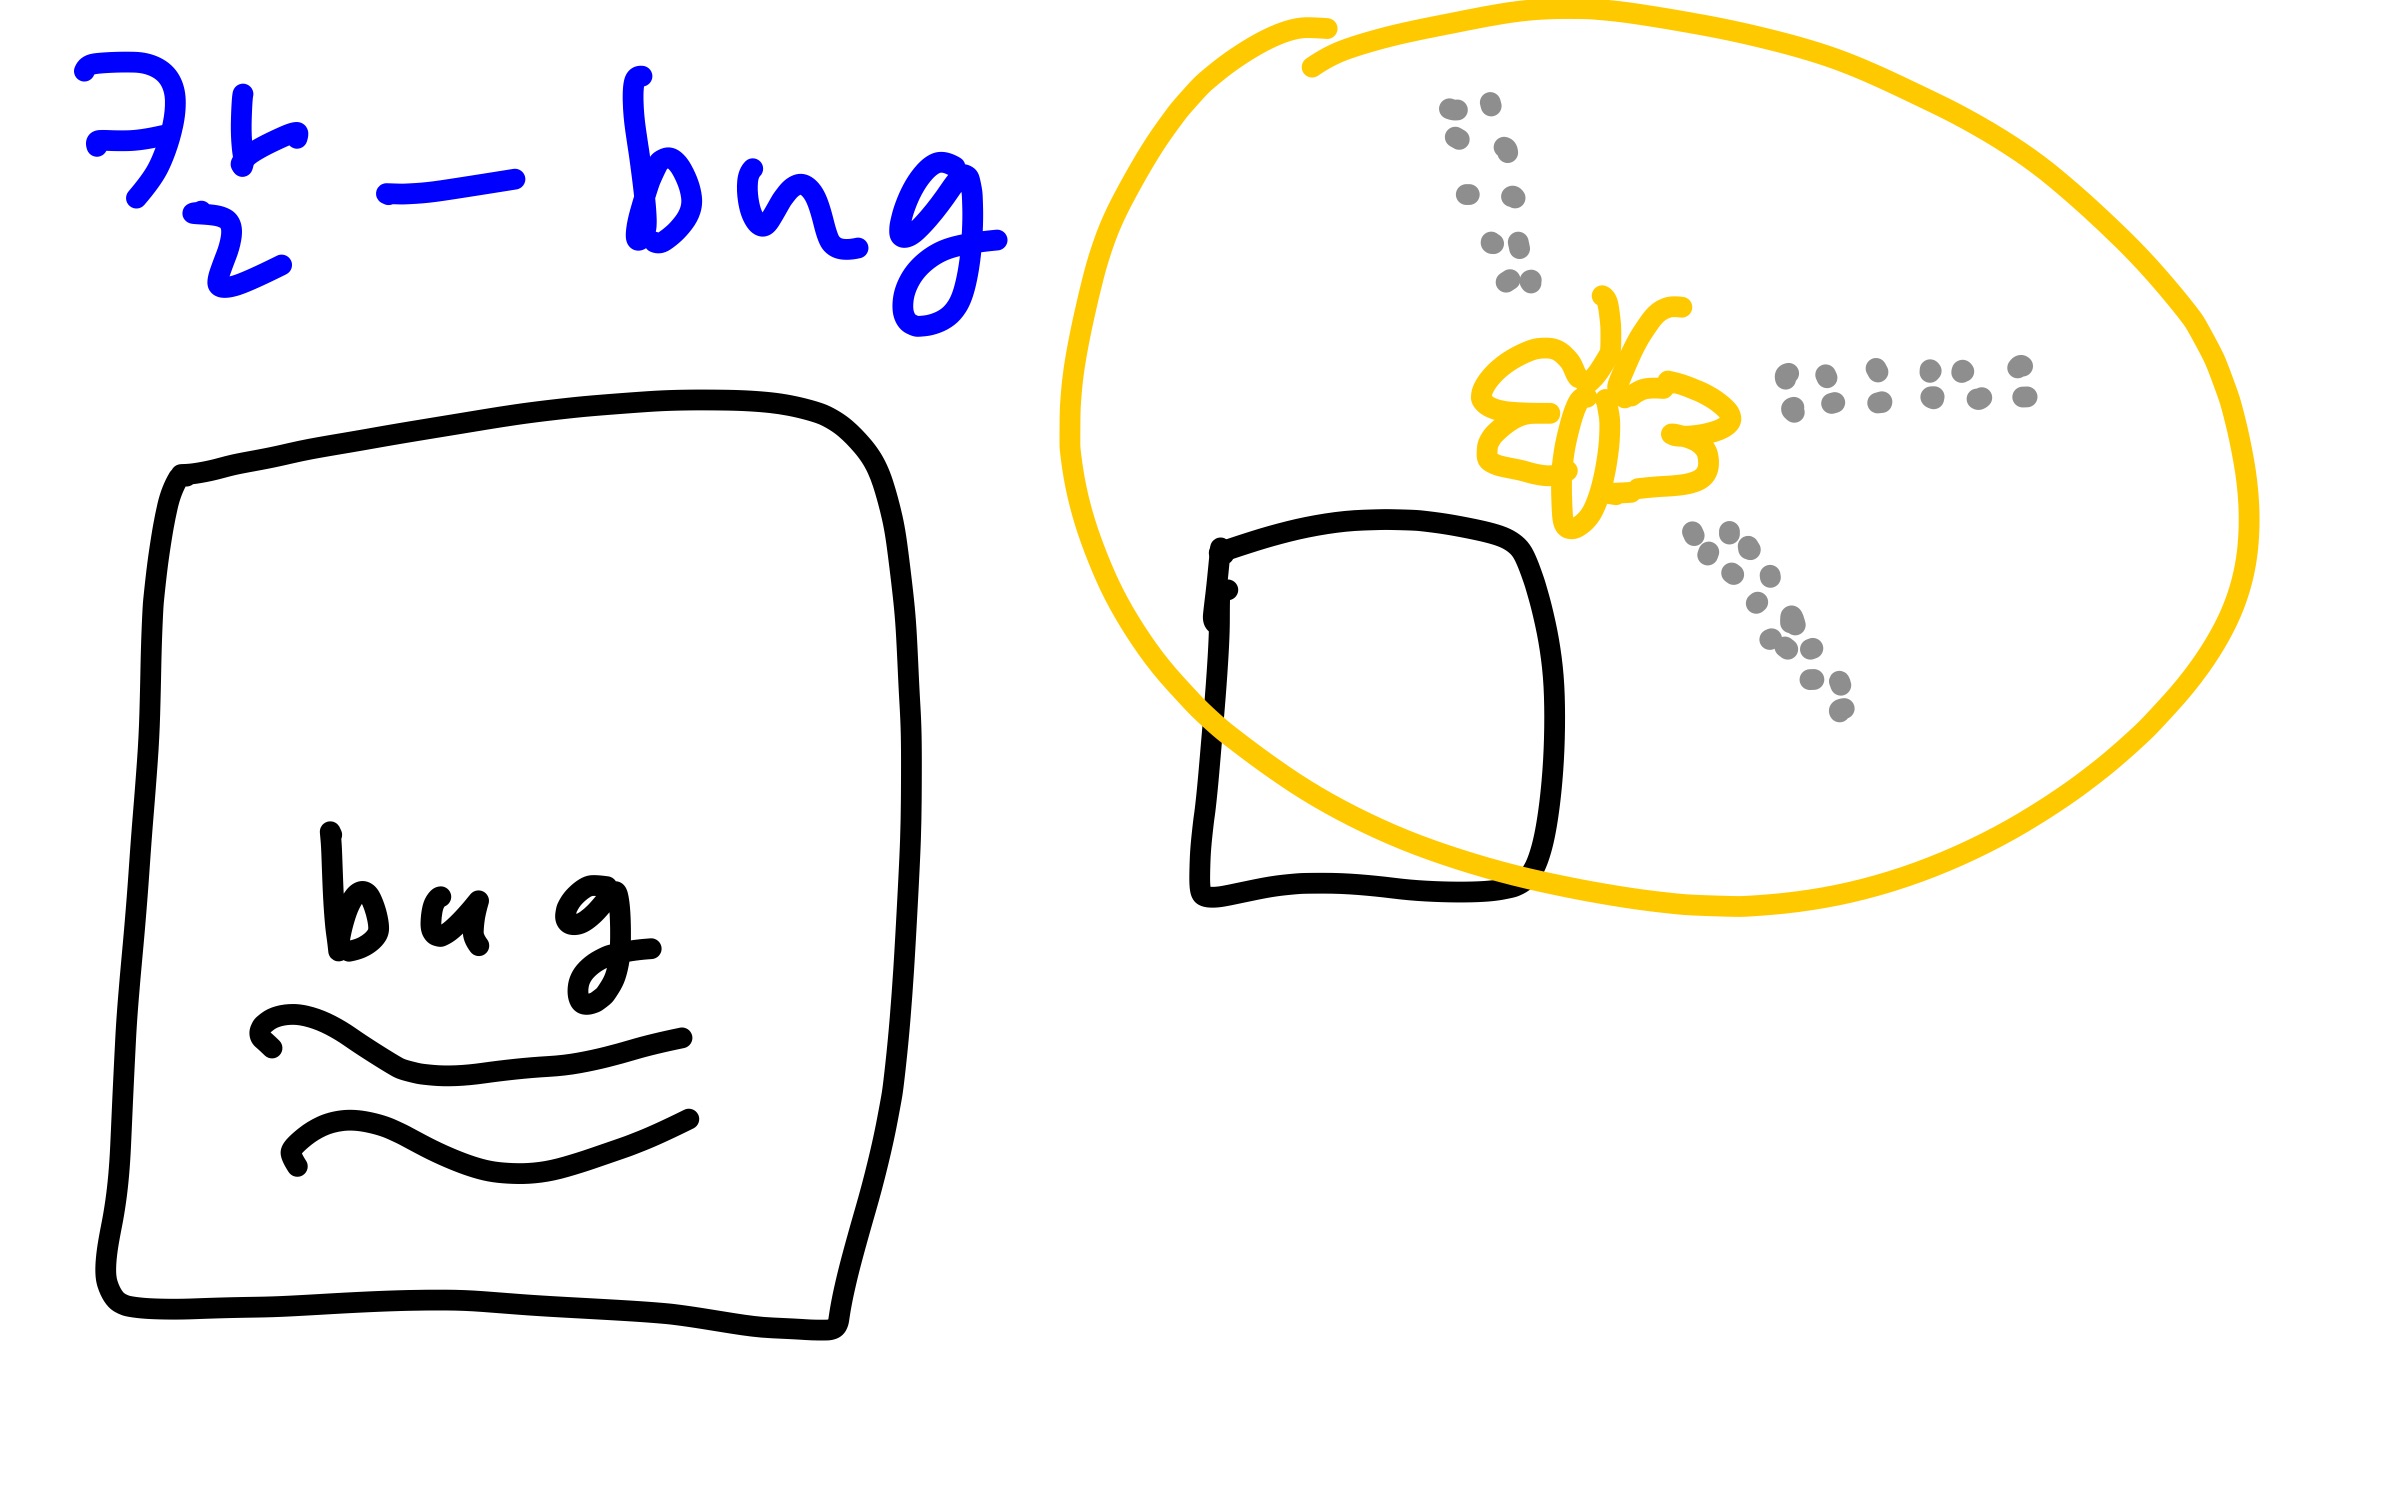 칼 - bug
bug